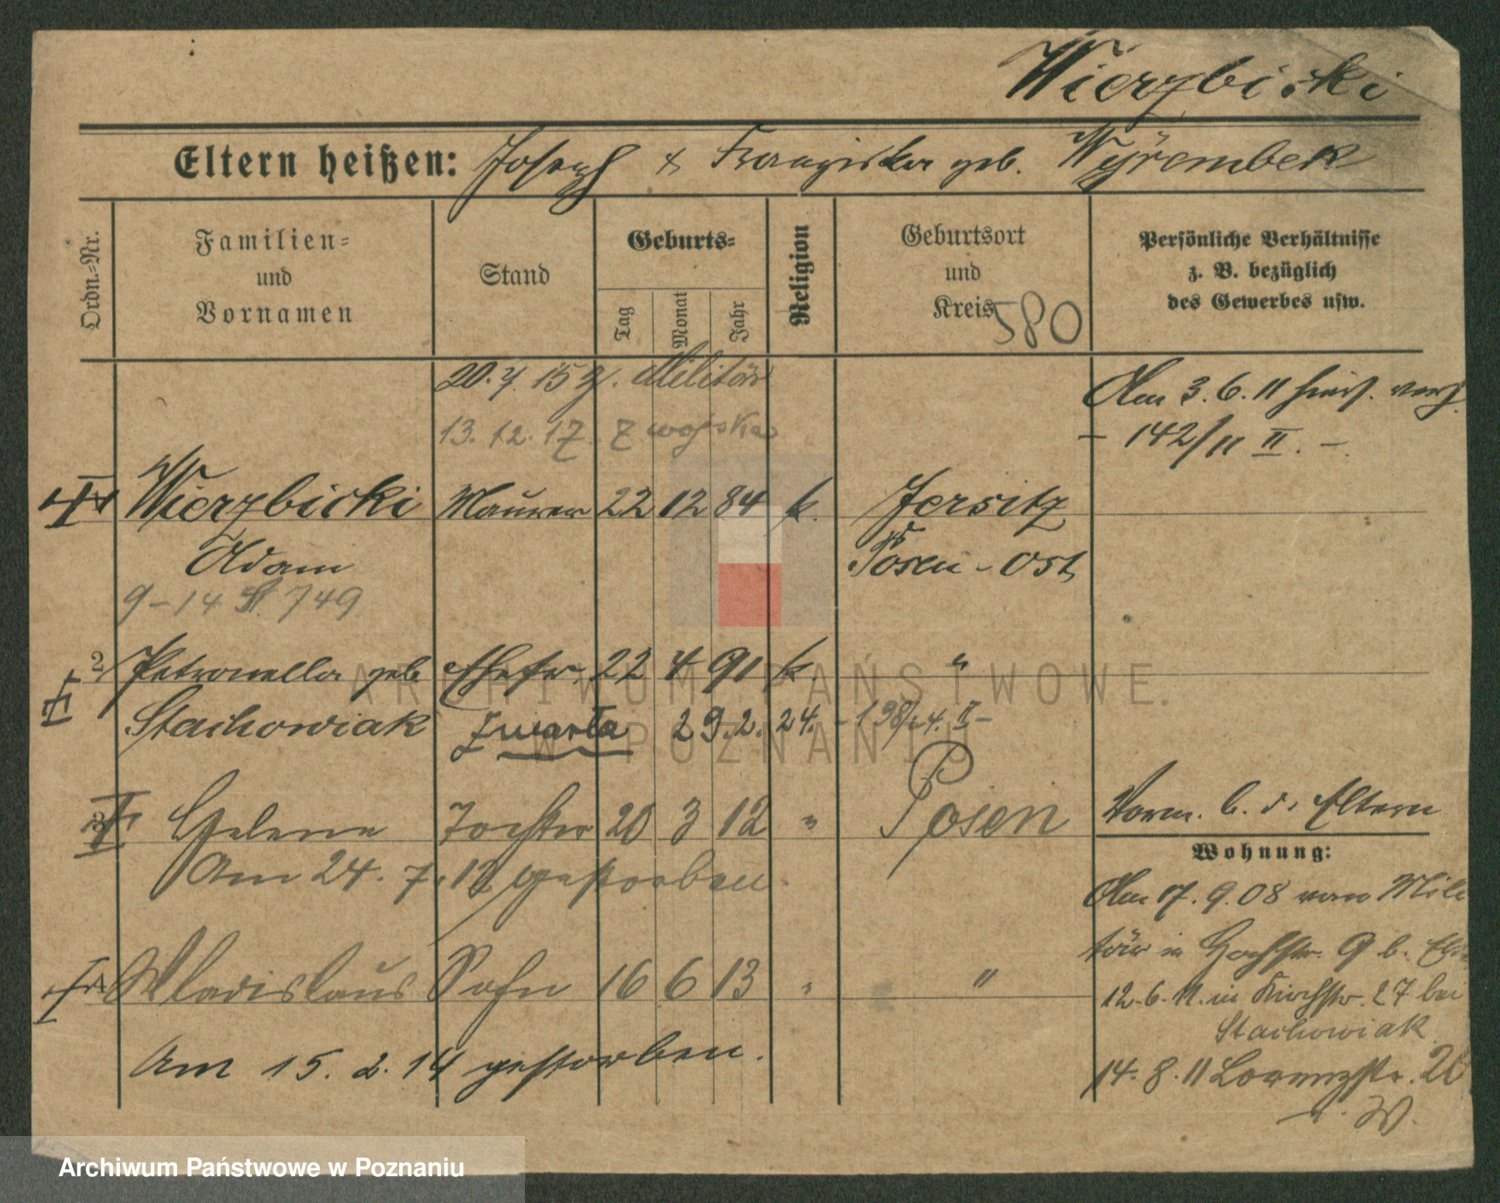 Wierzbicki
Eltern heißen: Joseph & Franziska geb. Wyrembek
Ordn.=Nr.
Familien=
und
Vornamen
Stand
Geburts=
Tag
Monat
Jahr
Religion
Geburtsort
und
Kreis
580
Persönliche Verhältnisse
z. B. bezüglich
des Gewerbes usw.
20. 7. 15 z. Militär
13. 12. 17. z wojska
Am 3. 6. 11 hier. verh.
– 142/11 II. –
Wierzbicki Maurer 22 12 84 k. Jersitz
Adam Posen - Ost
9 – 14 749
2 Petronella geb Ehefr. 22 4 91 k "
Stachowiak Zmarła 29. 2. 24. – 198/24. II –
3 Helene Tochter 20 3 12 " Posen
Am 24. 7. 12 gestorben.
Vorm. b. d. Eltern
Wohnung:
Am 17. 9. 08 vom Mili
tär in Hochstr. 9 b. Elt
12. 6. 11. in Kirchstr. 27 bei
Stachowiak
14. 8. 11 Lorenzstr. 20
Wladislaus Sohn 16 6 13 " "
Am 15. 2. 14 gestorben.
ARCHIWUM PAŃSTWOWE
W POZNANIU
Archiwum Państwowe w Poznaniu